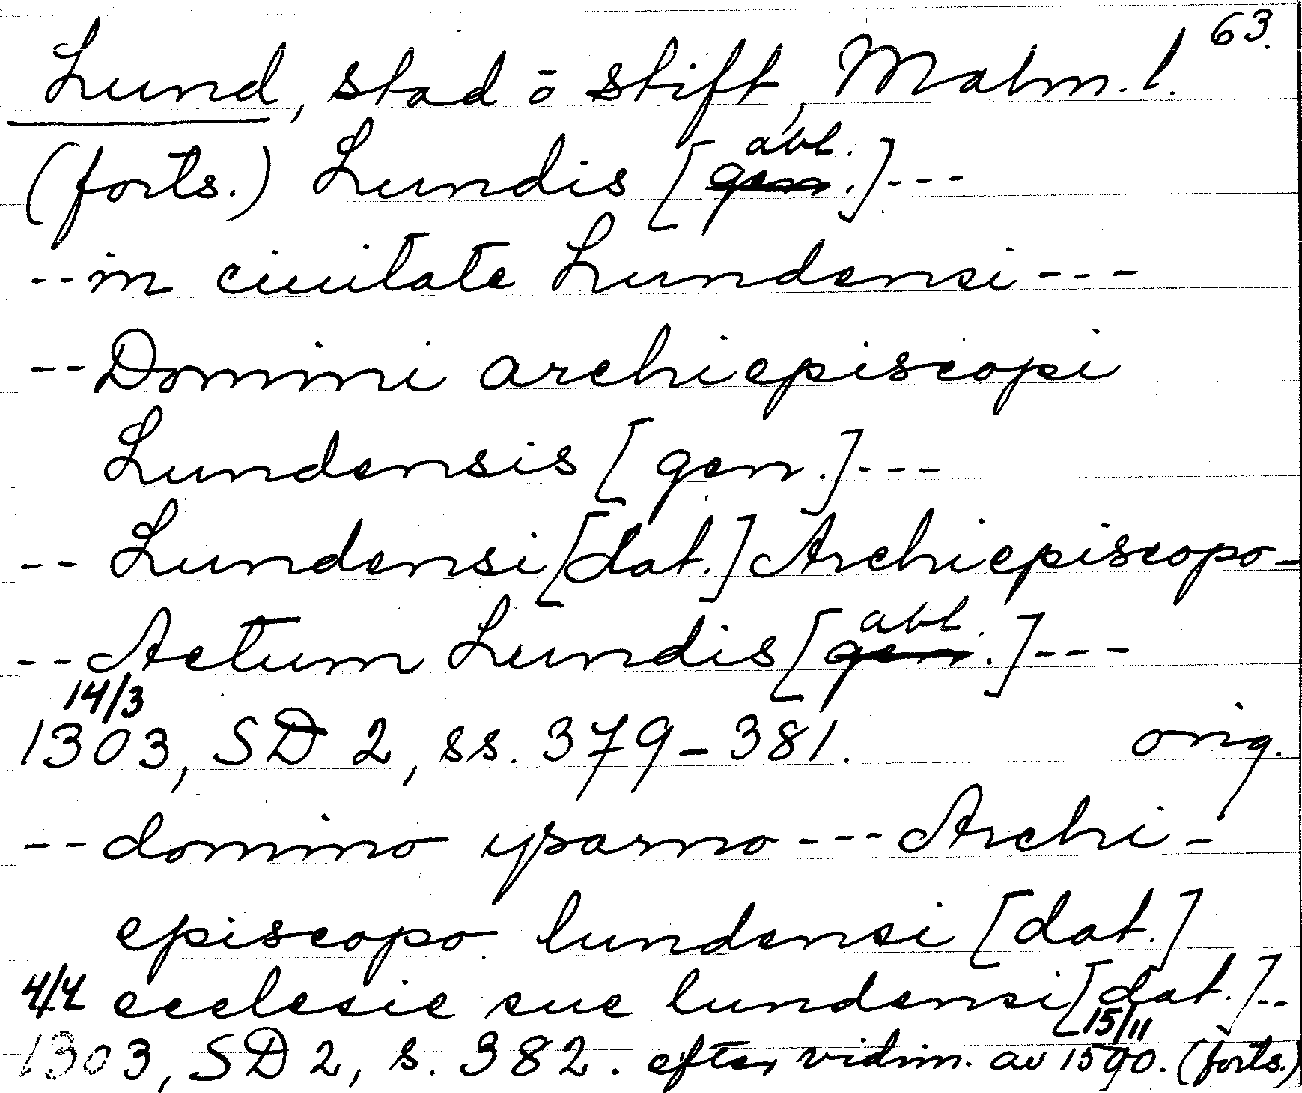 63.
Lund, stad o stift, Malm. l.
(forts.) Lundis [gen. abl.]---
--in ciuitate Lundensi---
--Domini archiepiscopi
Lundensis [gen.]---
-- Lundensi [dat.] Archiepiscopo--
--Actum Lundis [gen. abl.]---
14/3
1303, SD 2, ss. 379-381. orig.
--domino ysarno---Archi-
episcopo lundensi [dat.]
4/4 ecclesie sue lundensi [dat.]--
1303, SD 2, s. 382. efter vidim. av 15/11 1590. (forts.)